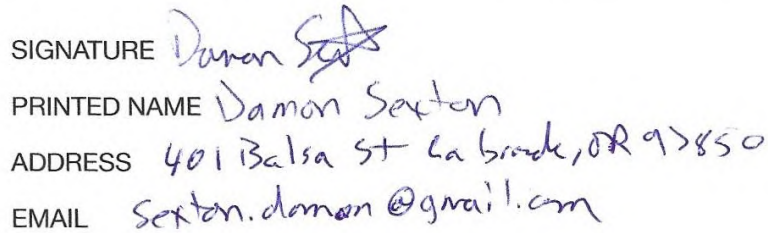 SIGNATURE Damon
PRINTED NAME Damon Sexton
ADDRESS 401 Balsa St La Grande, OR 97850
EMAIL sexton.damon@gmail.com